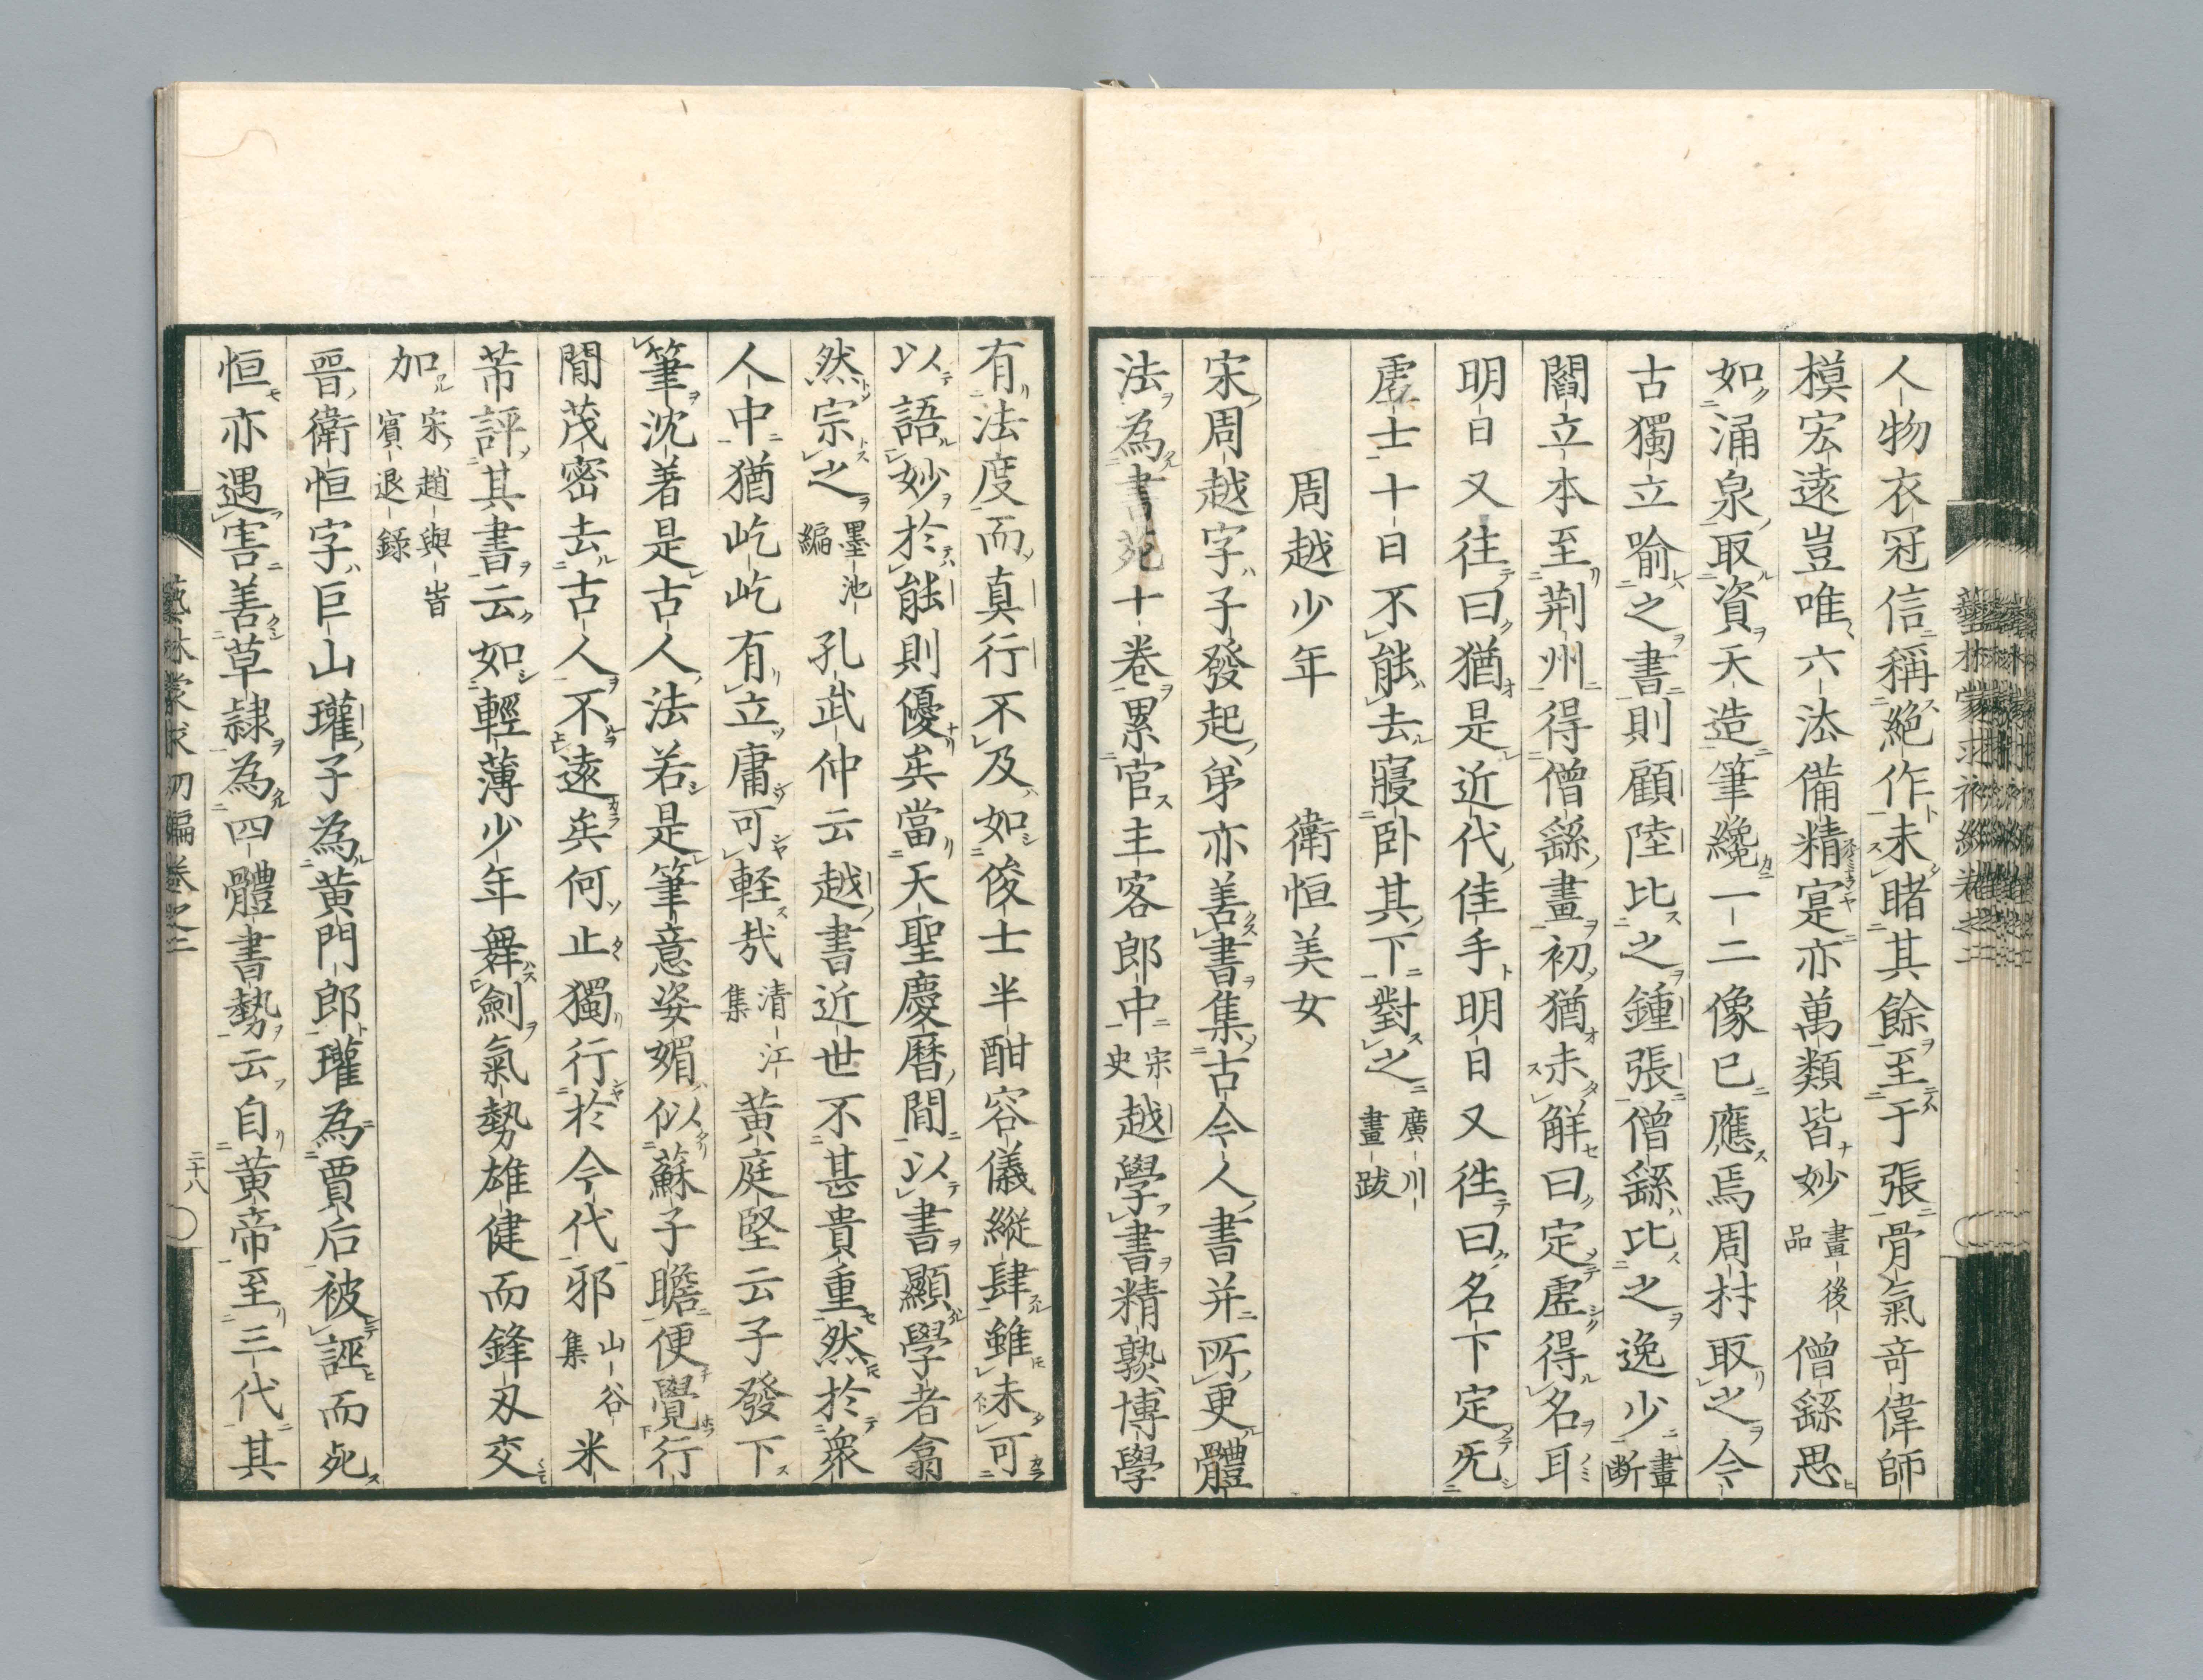 人物衣冠信稱絶作未睹其餘至于張骨氣竒偉師
模宏遠豈唯六法備精寔亦萬類皆妙畫後品僧繇思
如涌泉取資天造筆纔一二像已應焉周材取之今
古獨立喻之書則顧陸比之鍾張僧繇比之逸少畫断
閻立本至荆州得僧繇畫初猶未解曰定虚得名耳
明日又往曰猶是近代佳手明日又往曰名下定旡
虚士十日不能去寢卧其下對之廣川畫跋
周越少年　衛恒美女
宋周越字子發起弟亦善書集古今人書并所更體
法為書苑十卷累官主客郎中宋史越學書精熟博學
有法度而真行不及如俊士半酣容儀縦肆雖未可
以語妙於能則優矣當天聖慶暦間以書顯學者翕
然宗之墨池編孔武仲云越書近世不甚貴重然於衆
人中猶屹屹有立庸可軽哉清江集黄庭堅云子發下
筆沈著是古人法若是筆意姿媚似蘇子瞻便覺行
間茂密去古人不遠矣何止獨行於今代邪山谷集米
芾評其書云如輕薄少年舞劍氣勢雄健而鋒刃交
加宋趙與旹賓退録
晋衛恒字巨山瓘子為黄門郎瓘為賈后被誣而死
恒亦遇害善草隷為四體書勢云自黄帝至三代其
藝林蒙求初編卷之二
二十八